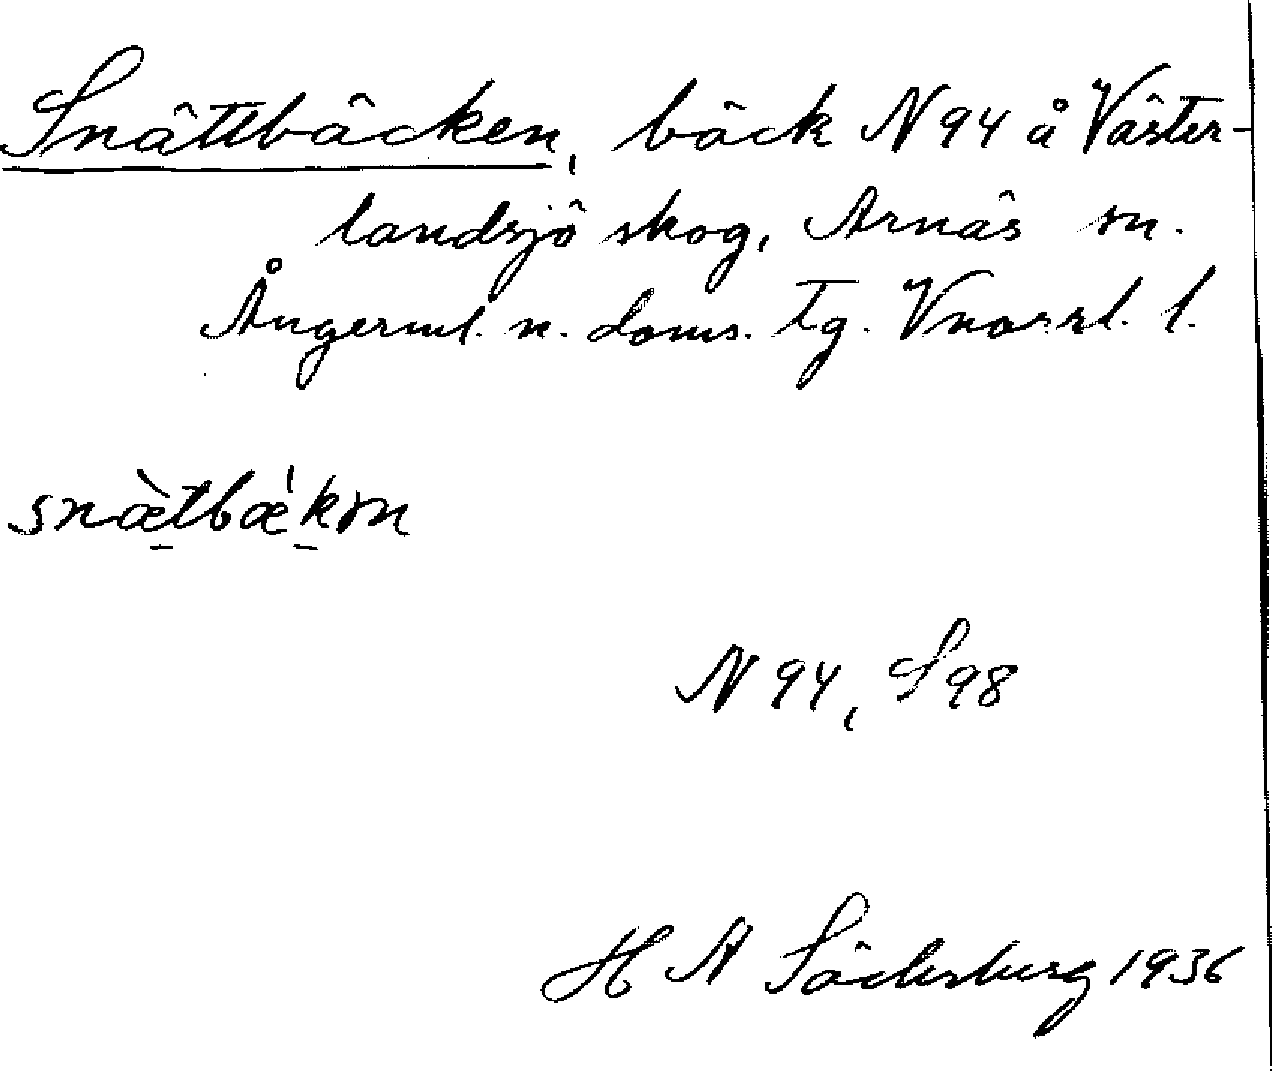 Snättbäcken, bäck N 94 å Väster-
landsjö skog, Arnäs sn.
Ångerml. n. doms. tg. Vnorrl. l.
snæ̠̀tbǽ̠kən
N 94, S 98
H A Söderberg 1936